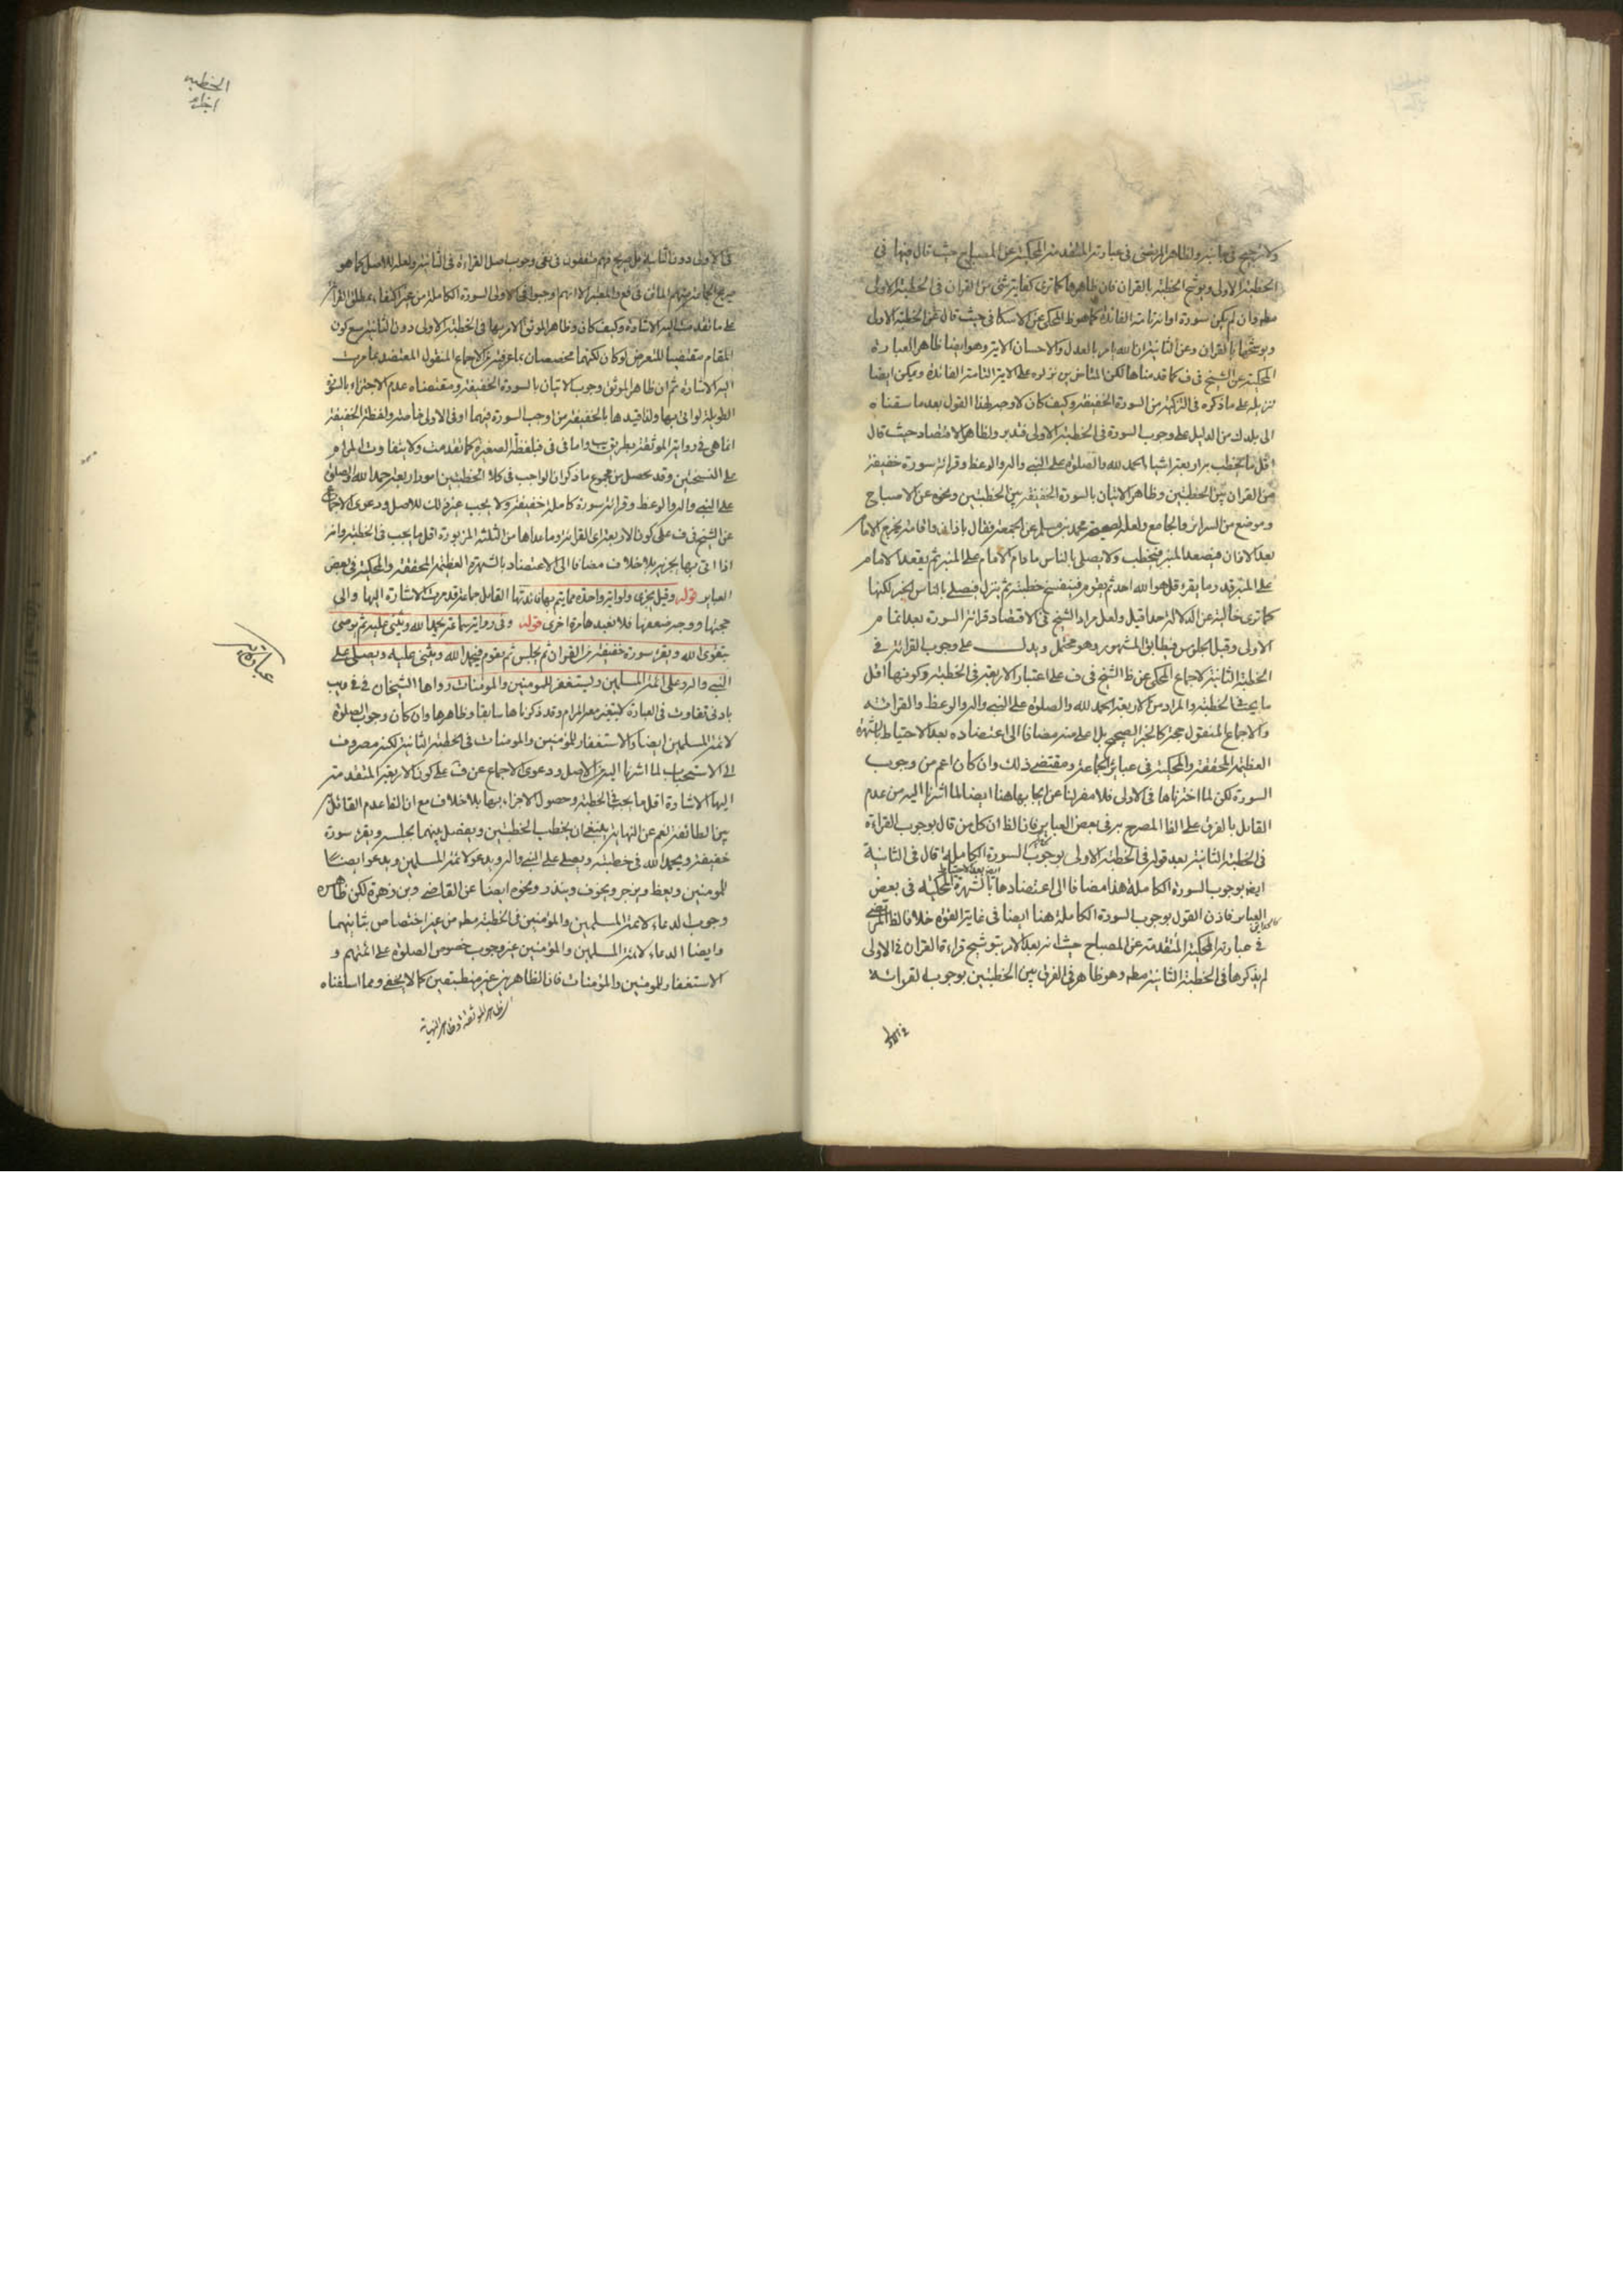 ولا ترجيح في ولظاهر المرتضى في عبارته المتقدمة المحكية عن المصباح حيث قال فيها في
الخطبة الاولى ويوشح الخطبة بالقران فان ظاهرها كما ترى كفاية شئ من القران في الخطبة الاولى
مطه وان لم يكن سورة او اية تامة الفائدة كما هو ظ المحكي عن الاسكافي حيث قال عن الخطبة الاولى
ويوشحها بالقران وعن الثانية ان الله يامر بالعدل والاحسان الاية وهو ايضا ظاهر العبارة
المحكية عن الشيخ في ف كما قدمناها لكن المتاخرين نزلوه على الاية التامة الفائدة ويمكن ايضا
تنزيله على ما ذكره في اكثر كتبه من السورة الخفيفة وكيف كان لا وجه لهذا القول بعد ما سقناه
الى يلدك من الدليل على وجوب السورة في الخطبة الاولى فتدبر ولظاهر الاقتصاد حيث قال
اقل ما يخطب به اربعة اشياء الحمد لله والصلوة على النبي واله والوعظ وقرائة سورة خفيفة
من القران بين الخطبتين وظاهره الاتيان بالسورة الخفيفة بين الخطبتين ونحوه عن الاصباح
وموضع من السرائر والجامع ولعله لصحيحة محمد بن مسلم عن الجمعة فقال باذان واقامة يخرج الامام
بعد الاذان فيصعد المنبر فيخطب ولا يصلي بالناس ما دام الامام على المنبر ثم يقعد الامام
على المنبر قدر ما يقرء قل هو الله احد ثم يقوم فيفتتح خطبته ثم ينزل فيصلي بالناس الخبر لكنها
كما ترى خالية عن الدلالة جدا قيل ولعل مراد الشيخ في الاقتصاد قرائة السورة بعد اتمام
الاولى وقبل الجلوس فيطابق المشهور وهو محتمل ويدل على وجوب القرائة في
الخطبة الثانية الاجماع المحكي عن ظ الشيخ في ف على اعتبار الاربعة في الخطبة وكونها اقل
ما يجب في الخطبة والمراد من الاربعة الحمد لله والصلوة على النبي واله والوعظ والقرائة
والاجماع المنقول حجة كالخبر الصحيح بل اعلى منه مضافا الى اعتضاده بعد الاحتياط بالشهرة
العظيمة المحققة والمحكية في عبائر الجماعة ومقتضى ذلك وان كان اعم من وجوب
السورة لكن لما اخترناها في الاولى فلا مفر لنا عن ايجابها هنا ايضا لما اشرنا اليه من عدم
القائل بالفرق على الظ المصرح به في بعض العباير فان الظ ان كل من قال بوجوب القراءة
في الخطبة الثانية بعد قوله في الخطبة الاولى بوجوب السورة الكاملة قال في الثانية
ايض بوجوب السورة الكاملة هذا مضافا الى اعتضادها بالشهرة المحكية في بعض
العباير فاذن القول بوجوب السورة الكاملة هنا ايضا في غاية القوة خلافا لظ المرتضى
في عبارته المحكية المتقدمة عن المصباح حيث انه بعد الامر بتوشيح قراءة القران في الاولى
لم يذكرها في الخطبة الثانية مطه وهو ظاهر في الفرق بين الخطبتين بوجوب القرائة
في الاولى
الخطبه
في الاولى دون الثانية بل صريح فهم متفقون في نفي وجوب اصل القراءة في الثانية ولعله للاصل كما هو
صريح الجماعة منهم الماتن في فع والمعتبر الا انهم اوجبوا في الاولى السورة الكاملة من غير اكتفاء بمطلق القران
على ما تقدمت اليه الاشارة وكيف كان وظاهر الموثق الامر بها في الخطبة الاولى دون الثانية مع كون
المقام مقتضيا للتعرض لو كان لكنهما مخصصان بما عرفته من الاجماع المنقول المعتضد بما مرت
اليه الاشارة ثم ان ظاهر الموثق وجوب الاتيان بالسورة الخفيفة ومقتضاه عدم الاجتزاء بالسورة
الطويلة لو اتى بها ولذا قيدها بالخفيفة من اوجب السورة فيهما او في الاولى خاصة ولفظة الخفيفة
انما هي في رواية الموثقة بطريق يب واما في في فبلفظة الصغيرة كما تقدمت ولا يتفاوت المرام
على النسختين وقد يحصل من مجموع ما ذكر ان الواجب في كلا الخطبتين امور اربعة حمد الله والصلوة
على النبي واله والوعظ وقرائة سورة كاملة خفيفة ولا يجب غير ذلك للاصل ودعوى الاجماع
عن الشيخ في ف على كون الاربعة اي القرائة وما عداها من الثلثة المزبورة اقل ما يجب في الخطبة وانه
اذا اتى بها يجزيه بلا خلاف مضافا الى الاعتضاد بالشهرة العظيمة المحققة والمحكية في بعض
العباير قوله وقيل يجزي ولو اية واحدة مما يتم بها فائدتها القائل جماعة قد مرت الاشارة اليها والى
حجتها ووجه ضعفها فلا نعيدها مرة اخرى قوله وفي رواية سماعة يحمد الله ويثني عليه ثم يوصي
بتقوى الله ويقرء سورة خفيفة من القران ثم يجلس ثم يقوم فيحمد الله ويثني عليه ويصلي على
النبي واله وعلى ائمة المسلمين ويستغفر للمومنين والمومنات رواها الشيخان في في ويب
بادنى تفاوت في العبارة لا يتغير معه المرام وقد ذكرناها سابقا وظاهرها وان كان وجوب الصلوة
لائمة المسلمين ايضا والاستغفار للمؤمنين والمومنات في الخطبة الثانية لكنه مصروف
الى الاستحباب لما اشرنا اليه من الاصل ودعوى الاجماع عن ف على كون الاربعة المتقدمة
اليها الاشارة اقل ما يجب في الخطبة وحصول الاجزاء بها بلا خلاف مع ان الظ عدم القائل
بين الطائفة نعم عن النهاية ينبغي ان يخطب الخطبتين ويفصل بينهما بجلسة ويقرء سورة
خفيفة ويحمد الله في خطبته ويصلي على النبي واله ويدعو لائمة المسلمين ويدعو ايضا
للمومنين ويعظ ويزجر ويخوف وينذر ونحوه ايضا عن القاضي وبن زهرة لكن ظاهره
وجوب الدعاء لائمة المسلمين والمؤمنين في الخطبة مطه من غير اختصاص بثانيهما
وايضا الدعاء لائمة المسلمين والمؤمنين غير وجوب خصوص الصلوة على ائمتهم و
الاستغفار للمومنين والمؤمنات فان الظاهرين غير منطبقين كما لا يخفى ومما اسلفناه